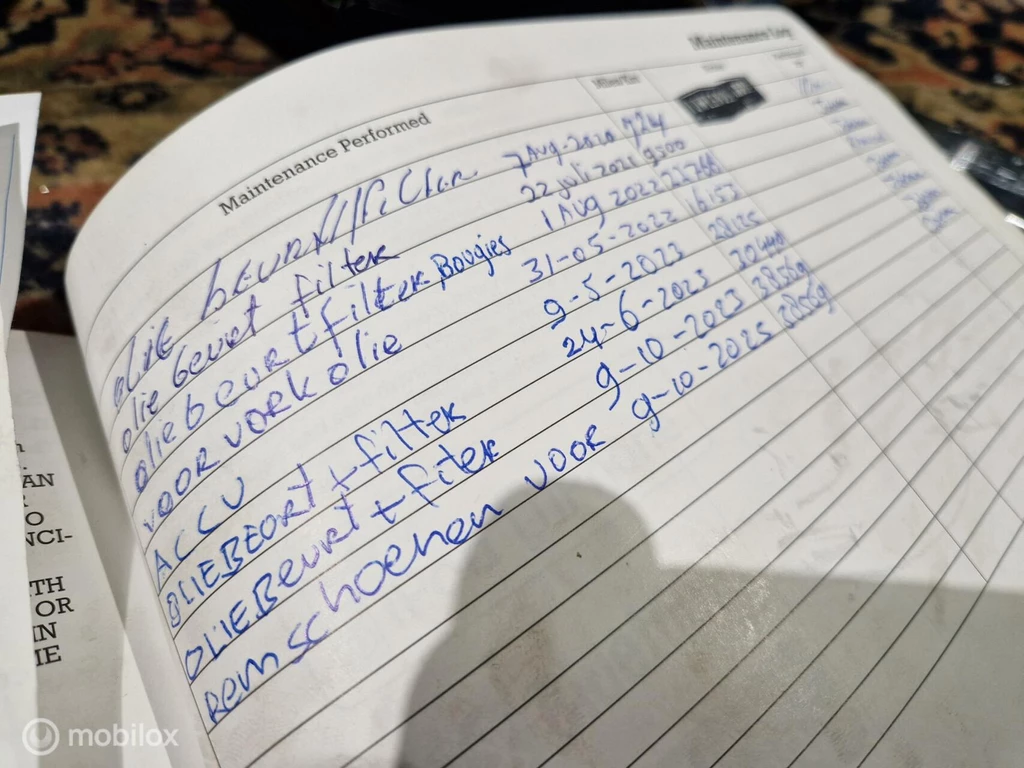 Maintenance Log
Maintenance Performed
olie beurt filter 7 Aug-2020 724
olie beurt filter 22 juli 2021 9500
olie beurt filter Bougies 1 Aug 2022 22768
VOOR VORK olie 31-05-2022 16153
ACCU 9-5-2023 28125
OLIEBEORT + filter 24-6-2023 30440
OLIEBeurt + fiter 9-10-2023 38569
Remschoenen VOOR 9-10-2025 38569
AN
O
NCI-
TH
OR
IN
IE
mobilox